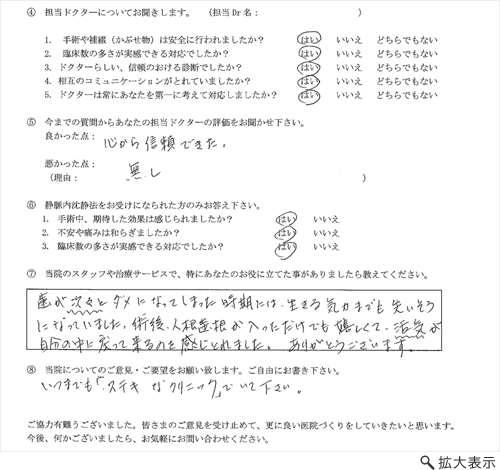 ④ 担当ドクターについてお聞きします。 （担当Dr名： ）
1. 手術や補綴（かぶせ物）は安全に行われましたか？ はい いいえ どちらでもない
2. 臨床数の多さが実感できる対応でしたか？ はい いいえ どちらでもない
3. ドクターらしい、信頼のおける診断でしたか？ はい いいえ どちらでもない
4. 相互のコミュニケーションがとれていましたか？ はい いいえ どちらでもない
5. ドクターは常にあなたを第一に考えて対応しましたか？ はい いいえ どちらでもない
⑤ 今までの質問からあなたの担当ドクターの評価をお聞かせ下さい。
良かった点：
心から信頼できた。
悪かった点：
無し
（理由： ）
⑥ 静脈内沈静法をお受けになられた方のみお答え下さい。
1. 手術中、期待した効果は感じられましたか？ はい いいえ
2. 不安や痛みは和らぎましたか？ はい いいえ
3. 臨床数の多さが実感できる対応でしたか？ はい いいえ
⑦ 当院のスタッフや治療サービスで、特にあなたのお役に立てた事がありましたら教えてください。
歯が次々とダメになってしまった時期には、生きる気力までも失いそう
になっていました。術後、人根歯根が入っただけでも嬉しくて、活気が
自分の中に戻って来るのを感じとれました。ありがとうございます。
⑧ 当院についてのご意見・ご要望をお願い致します。ご自由にお書き下さい。
いつまでも「ステキなクリニック」でいて下さい。
ご協力有難うございました。皆さまのご意見を受け止めて、更に良い医院づくりをしていきたいと思います。
今後、何かございましたら、お気軽にお問い合わせください。
拡大表示